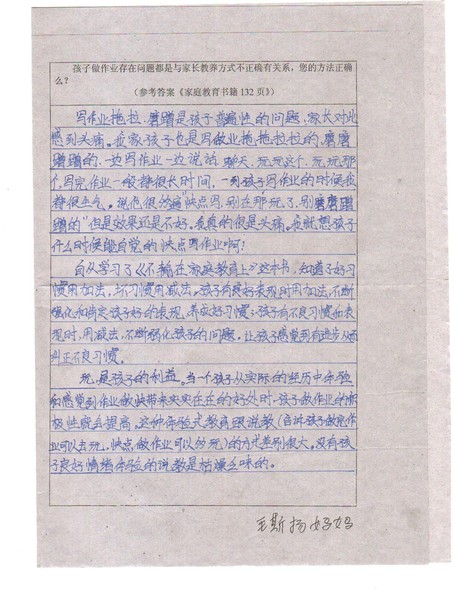 孩子做作业存在问题都是与家长教养方式不正确有关系，您的方法正确
么？
（参考答案《家庭教育书籍132页》）
写作业拖拉、磨蹭是孩子普遍性的问题，家长对此
感到头痛。我家孩子也是写做业拖拖拉拉的，磨磨
蹭蹭的、一边写作业一边说话、聊天，玩玩这个、玩玩那
个，写完作业一般都很长时间，一到孩子写作业的时候我
都很生气。说他很多遍“快点写，别在那玩了，别磨磨蹭
蹭的”但是效果还是不好。真真的很是头痛。我就想孩子
什么时候能自觉的快点写作业啊！
自从学习了《不输在家庭教育上》这本书，知道了好习
惯用加法，坏习惯用减法。孩子有良好表现时用加法，不断
强化和肯定孩子好的表现，养成好习惯；孩子有不良好表
现时，用减法，不断弱化孩子的问题。让孩子感觉到有进步从而
纠正不良习惯。
玩，是孩子的利益。当一个孩子从实际的经历中体验
和感觉到作业做快带来实实在在的好处时，孩子做作业的积
极性就会提高。这种体验式教育跟说教（告诉孩子做完作
业可以去玩，快点做作业可以多玩）的方式差别很大，没有孩
子良好情绪体验的说教是枯燥乏味的。
王斯扬妈妈